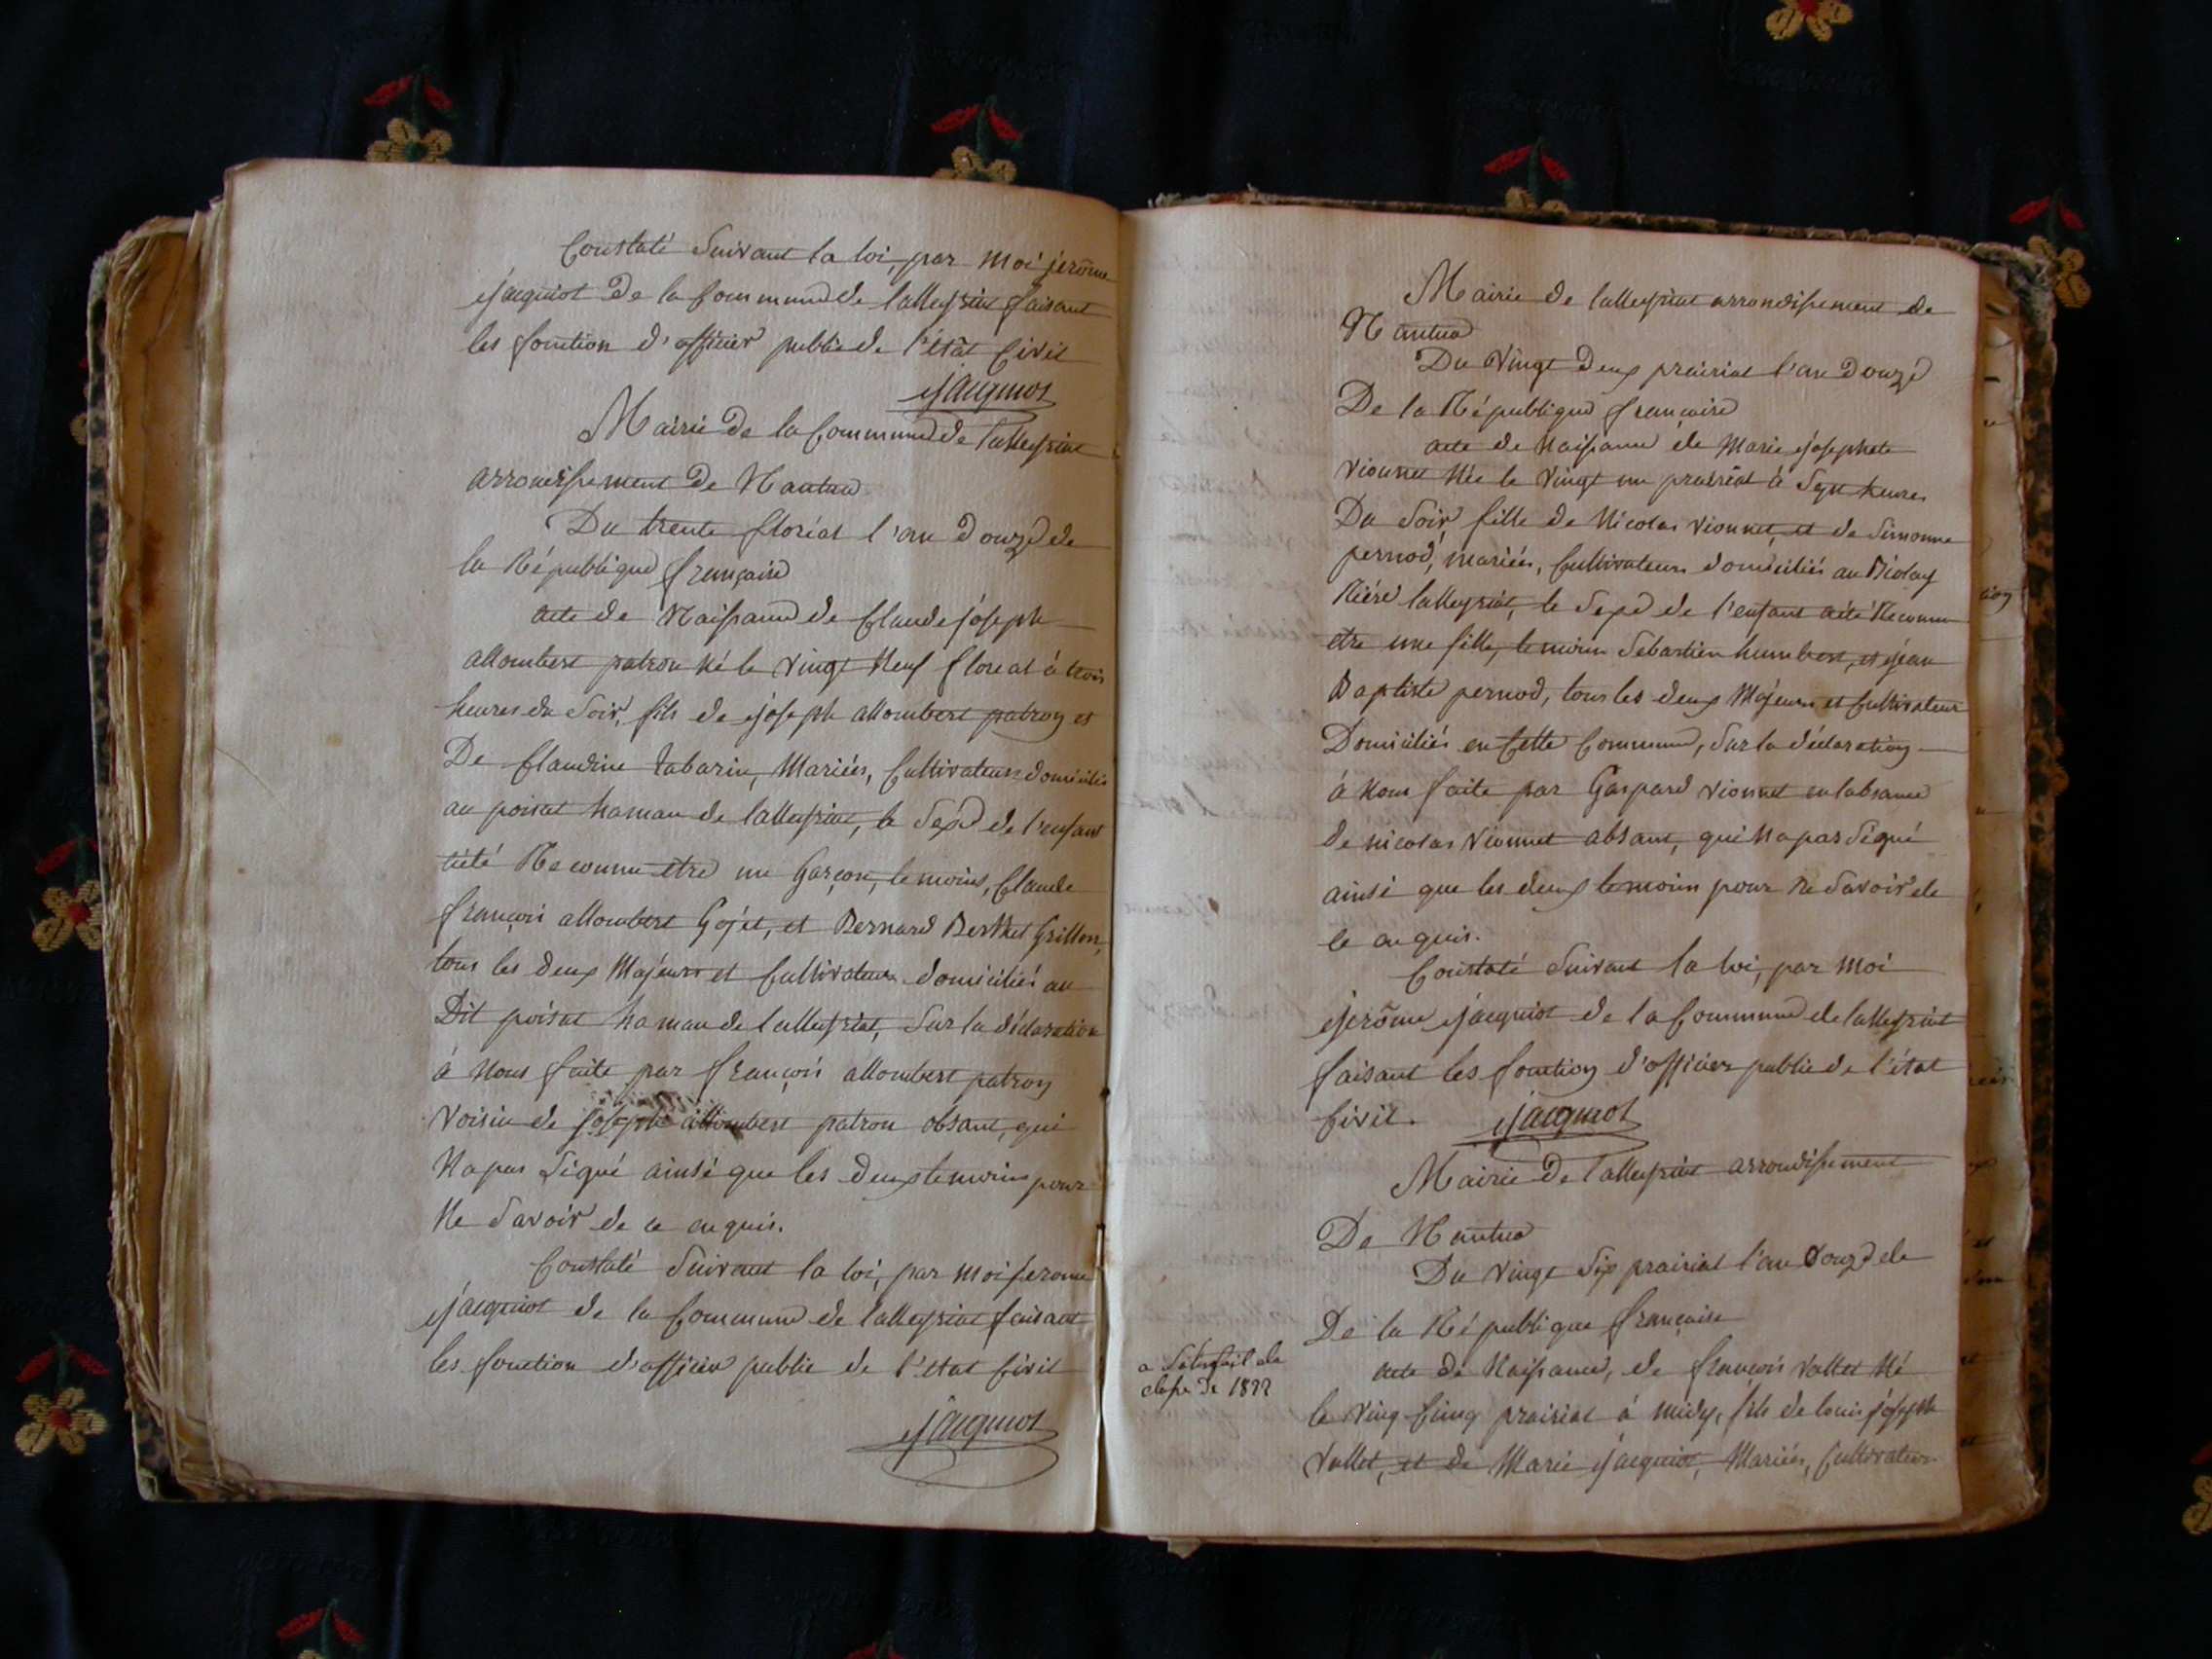 Constaté Suivant la loi, par moi jerôme
jacquiot De la Commune de lalleyriat faisant
les fonction d'officier public de l'état Civil
jacquiot
Mairie De la Commune de lalleyriat
arrondissement De Nantua
Du trente floréal l'an Douze de
la République française
acte de Naissance de Claude joseph
allombert patron né le vingt Neuf floreal à trois
heures du Soir, fils de joseph allombert patron et
De Claudine tabarin, Mariés, Cultivateurs domiciliés
au poisat hamau de lalleyriat, le Sexe de l'enfant
Reconnu etre un Garçon, temoins, Claude
françois allombert Gojet, et Bernard Berthet Grillon,
tous les deux Majeurs et Cultivateurs domiciliés au
Dit poisat hamau de lalleyriat, Sur la déclaration
à Nous faite par françois allombert patron
Voisin de joseph allombert patron absant, qui
Na pas Signé ainsi que les Deux temoins pour
Ne Savoir de ce enquis.
Constaté Suivant la loi, par moi jerome
jacquiot de la Commune de lalleyriat faisant
les fonction d'officier public de l'état Civil
jacquiot
Mairie de lalleyriat arrondissement de
Nantua
Du Vingt Deux prairial l'an Douze
De la République française
acte de Naissance de Marie josephete
Vionnet Née le Vingt un prairial à Sept heures
Du Soir, fille de Nicolas Vionnet, et de Simonne
pernod, mariés, Cultivateurs domiciliés au
lalleyriat, le Sexe de l'enfant a été Reconnu
etre une fille, temoins Sébastien humbert, et jean
Baptiste pernod, tous les deux Majeurs et Cultivateur
Domiciliés en Cette Commune, Sur la déclaration
à Nous faite par Gaspard Vionnet en labsance
de nicolas Vionnet absant, qui Na pas Signé
ainsi que les deux temoin pour Ne Savoir de
ce enquis.
Constaté Suivant la loi, par moi
jerôme jacquiot de la Commune de lalleyriat
faisant les fonction d'officier public de l'état
Civil. jacquiot
Mairie De lalleyriat arrondissement
De Nantua
Du Vingt Six prairial l'an Douze de
De la République française
a Satisfait de
classe de 1822
acte de Naissance, de françois Vallet Né
le Ving Cinq prairial à midy, fils de louis joseph
Vallet, et de Marie jacquiot, Mariés, Cultivateurs